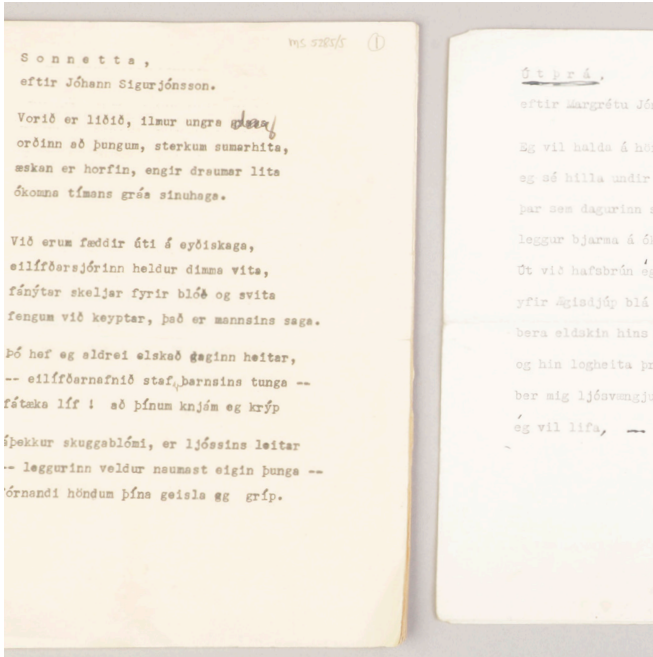 MS 5285/5 (1)
Sonnetta,
eftir Jóhann Sigurjónsson.
Vorið er liðið, ilmur ungra daga
orðinn að þungum, sterkum sumarhita,
æskan er horfin, engir draumar lita
ókomna tímans gráa sinuhaga.
Við erum fæddir úti á eyðiskaga,
eilífðarsjórinn heldur dimma vita,
fánýtar skeljar fyrir blóð og svita
fengum við keyptar, það er mannsins saga.
Þó hef eg aldrei elskað daginn heitar,
-- eilífðarnafnið staf, barnsins tunga --
fátæka líf ! að þínum knjám eg krýp
áþekkur skuggablómi, er ljóssins leitar
-- leggurinn veldur naumast eigin þunga --
fórnandi höndum þína geisla eg gríp.
Útþrá,
eftir Margrétu
Eg vil halda á
eg sé hilla undir
þar sem dagurinn
leggur bjarma á
Út við hafsbrún
yfir Ægisdjúp blá
bera eldskin hins
og hin logheita
ber mig
ég vil lifa, —